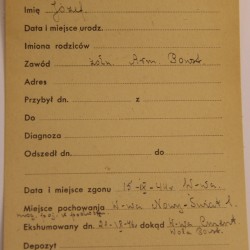 Imię Józef
Data i miejsce urodz.
Imiona rodziców
Zawód żołn. Arm.
Adres
Przybył dn. z
Do
Diagnoza
Odszedł dn. do
Data i miejsce zgonu 15-IX-44r. W-wa.
Miejsce pochowania W-wa Nowy-Świat
Ekshumowany dn. dokąd W-wa
Depozyt